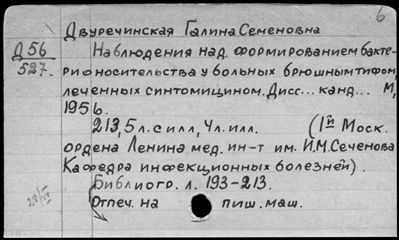 6
Двуречинская Галина Семеновна
Д56
527.
Наблюдения над формированием бакте-
рионосительства у больных брюшным тифом,
леченных синтомицином. Дисс... канд... М,
1956.
213,5 л. с илл, 4 л. илл. (1й Моск.
ордена Ленина мед. ин-т им. И.М. Сеченова
Кафедра инфекционных болезней).
Библиогр. л. 193-213.
Отпеч. на пиш. маш.